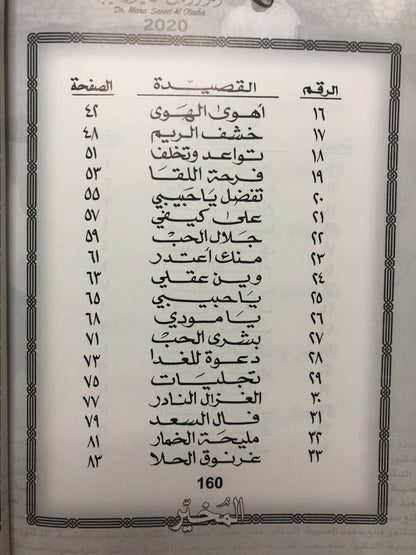 Dr. Mana Saeed Al Otaiba
2020
الرقم القصيدة الصفحة
١٦ أهوى الهوى ٤٢
١٧ خشف الريم ٤٨
١٨ تواعد وتخلف ٥١
١٩ فرحة اللقا ٥٣
٢٠ تفضل يا حبيبي ٥٥
٢١ على كيفي ٥٧
٢٢ جلال الحب ٥٩
٢٣ منك أعتذر ٦١
٢٤ وين عقلي ٦٣
٢٥ يا حبيبي ٦٥
٢٦ يا مودي ٦٨
٢٧ بشرى الحب ٧١
٢٨ دعوة للغدا ٧٣
٢٩ تجليات ٧٥
٣٠ الغزال النادر ٧٧
٣١ فال السعد ٧٩
٣٢ مليحة الخمار ٨١
٣٣ غرنوق الحلا ٨٣
160
المخير